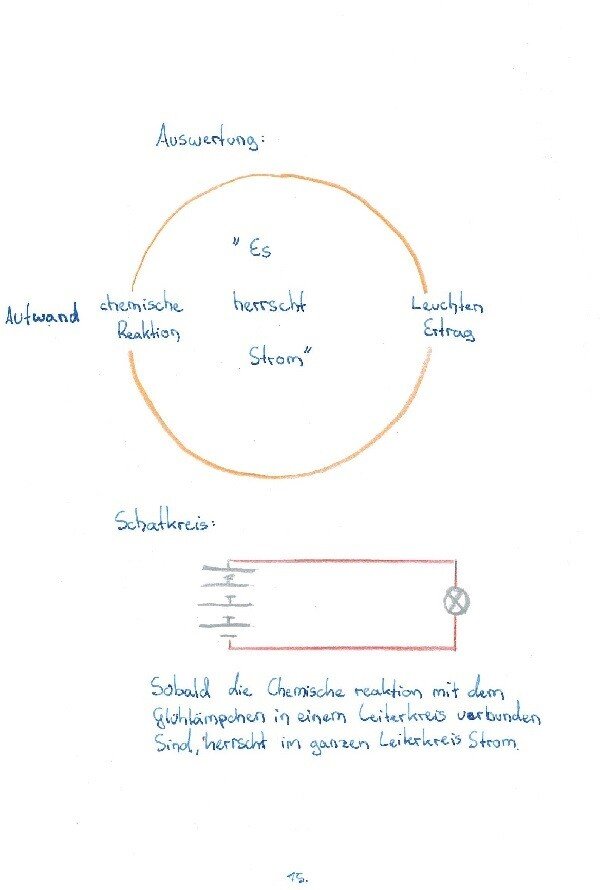 Auswertung:
" Es
Aufwand chemische herrscht Leuchten
Reaktion Ertrag
Strom"
Schatkreis:
Sobald die Chemische reaktion mit dem
Glühlämpchen in einem Leiterkreis verbunden
Sind, herrscht im ganzen Leiterkreis Strom.
15.